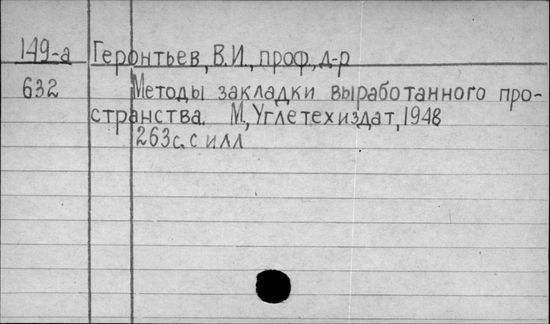 149-а Геронтьев, В.И., проф., д-р
632 Методы закладки выработанного про-
странства. М., Углетехиздат, 1948
263с. с илл